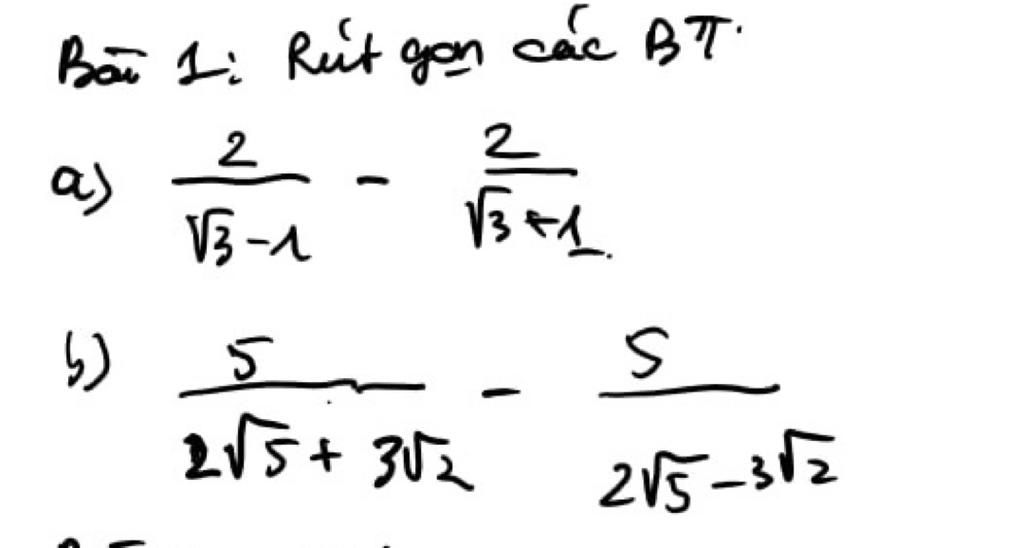 Bài 1: Rút gọn các BT.
a) \frac{2}{\sqrt{3}-1} - \frac{2}{\sqrt{3}+1}.
b) \frac{5}{2\sqrt{5}+3\sqrt{2}} - \frac{5}{2\sqrt{5}-3\sqrt{2}}